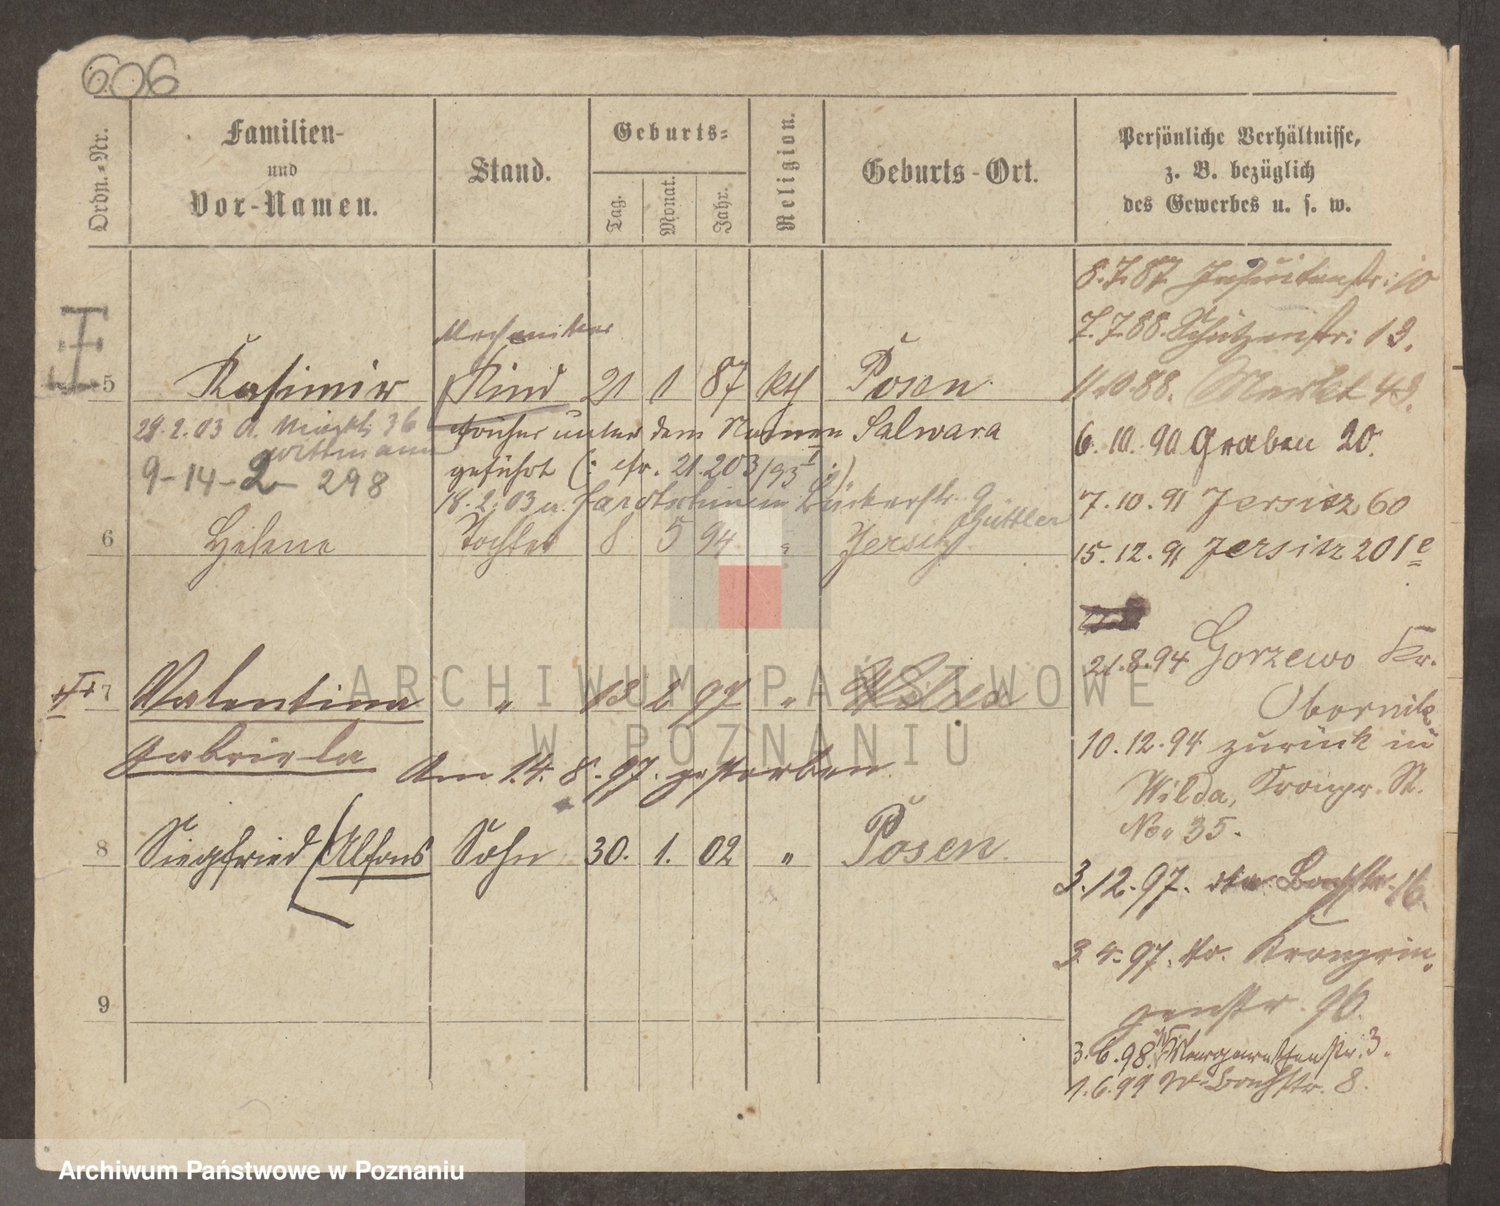 606
Ordn.-Nr.
Familien-
und
Vor-Namen.
Stand.
Geburts-
Tag.
Monat.
Jahr.
Religion.
Geburts-Ort.
Persönliche Verhältnisse,
z. B. bezüglich
des Gewerbes u. s. w.
8.7.87. Jesuitenstr: 10
7.7.88. Schützenstr: 13.
Mechaniker
5 Kasimir Kind 21 1 87 kth Posen
11.10.88. Markt 43.
6. 10. 90 Graben 20.
früher unter dem Namen Salwara
geführt (: cfr. 21.203/93
9-14-2- 298
7. 10. 91 Jersitz 60
6 Helene Tochter 8 5 94 " Jersitz
15. 12. 91 Jersitz 201e
21.8.94 Gorzewo Kr.
Obornik
7 Valentina " 13 2 97 " Wilda
Gabriela
Am 14. 8. 97. gestorben
10.12.94 zurück in
Wilda, Kronpr. St.
No. 35.
8 Siegfried (Alfons Sohn 30. 1. 02 " Posen
3.12.97. Bachstr. 16.
3. 4. 97. Kronprin-
zenstr. 96.
9
3.6.98. Margarethenstr. 3.
1.6.99 W. Bachstr. 8.
ARCHIWUM PAŃSTWOWE
W POZNANIU
Archiwum Państwowe w Poznaniu